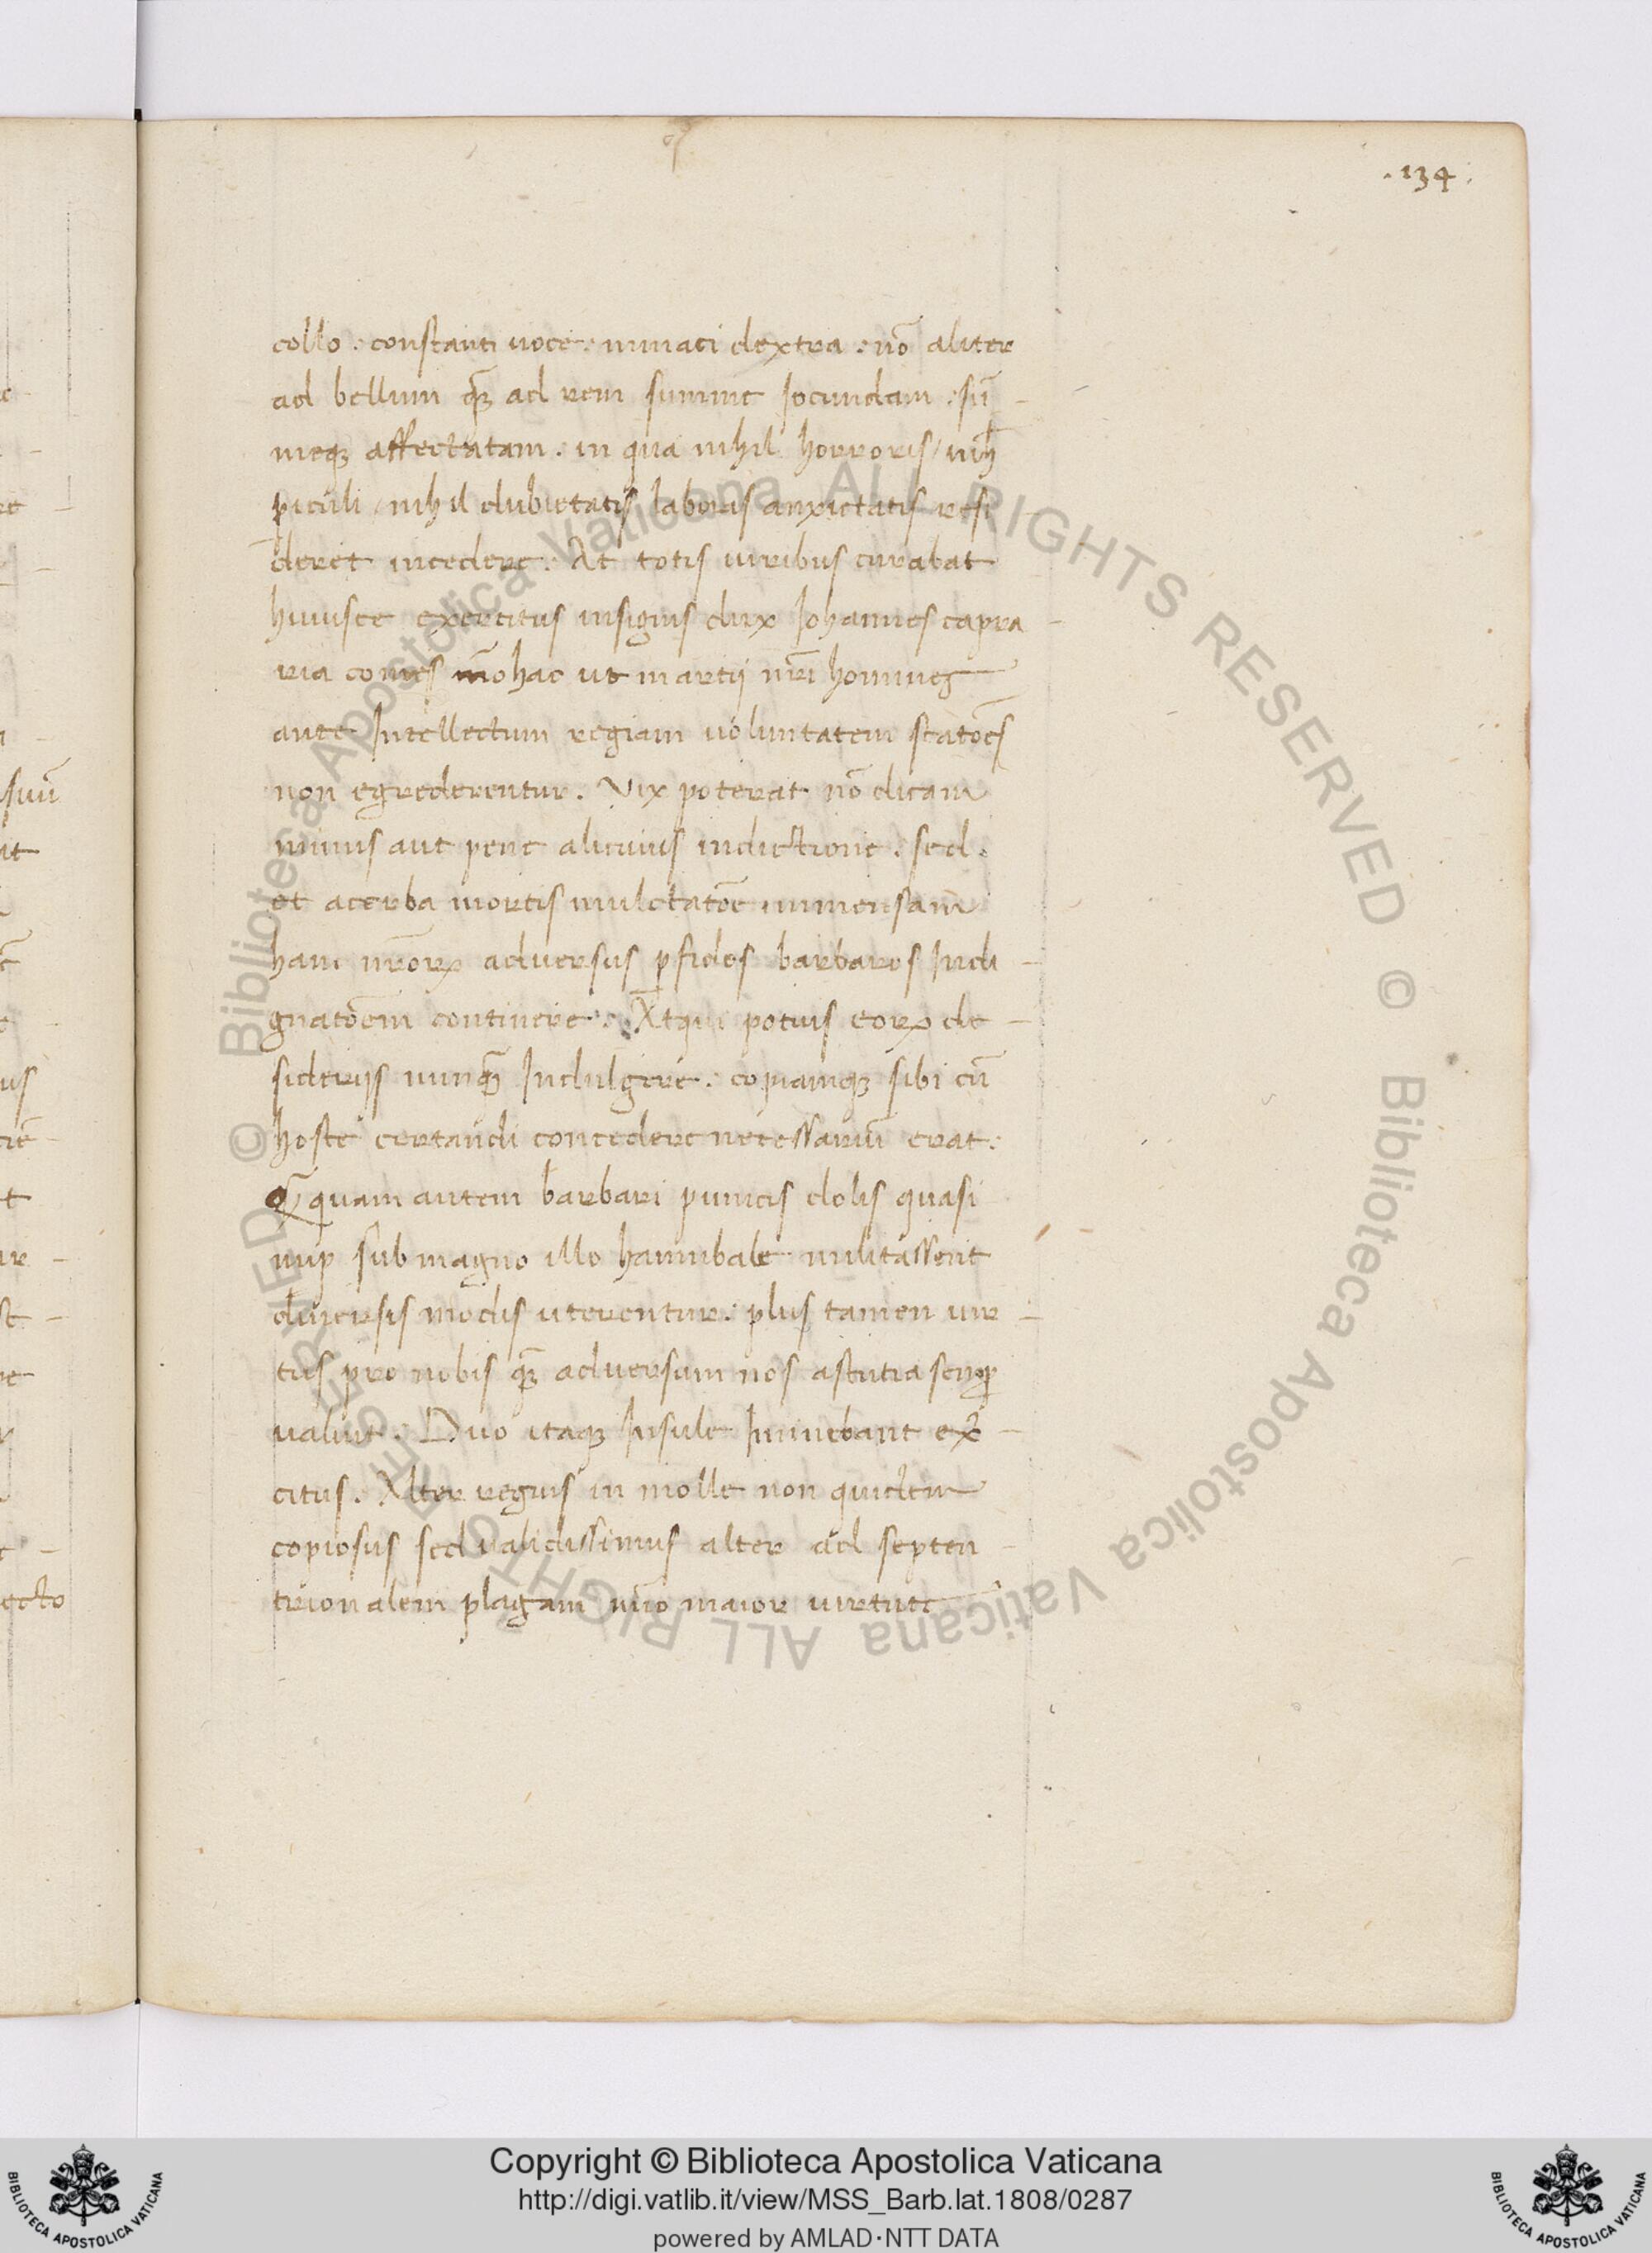 .134.
collo . constanti uoce . minaci dextra . nō aliter
ad bellum qȝ ad rem summe Jocundam . sū
meqȝ affectatam . in qua nihil horroris / nih̄
ꝑiculi / nihil dubietatis laboris anxietatis resi
deret incedere . At totis uiribus curabat
huiusce exercitus insignis dux Johannes capra
ria comes mohac ut martij nr̄i homines
ante Intellectum regiam uoluntatem statōēs
non egrederentur . Vix poterat nō dicam
minis aut pene alicuius indictione . sed .
et acerba mortis mulctatōe immensam
hanc nr̄orꝝ aduersus ꝑfidos barbaros Indi
gnatōem continere . Atqui potius eorꝝ de
siderijs nunqȝ Indulgere . copiamqȝ sibi cū
hoste certandi concedere necessariū erat .
Qȝquam autem barbari punicis dolis quasi
nuꝑ sub magno illo hannibale militassent
diuersis modis uterentur . plus tamen uir
tus pro nobis qȝ aduersum nos astutia semꝑ
ualuit . Duo itaqȝ Insule Iminebant ex̄
citus . Alter regius in molle non quidem
copiosus sed ualidissimus alter ad septen
trionalem plagam nūo maior uirtute
Copyright © Biblioteca Apostolica Vaticana
http://digi.vatlib.it/view/MSS_Barb.lat.1808/0287
powered by AMLAD·NTT DATA
© Biblioteca Apostolica Vaticana ALL RIGHTS RESERVED © Biblioteca Apostolica Vaticana ALL RIGHTS RESERVED
BIBLIOTECA APOSTOLICA VATICANA
BIBLIOTECA APOSTOLICA VATICANA